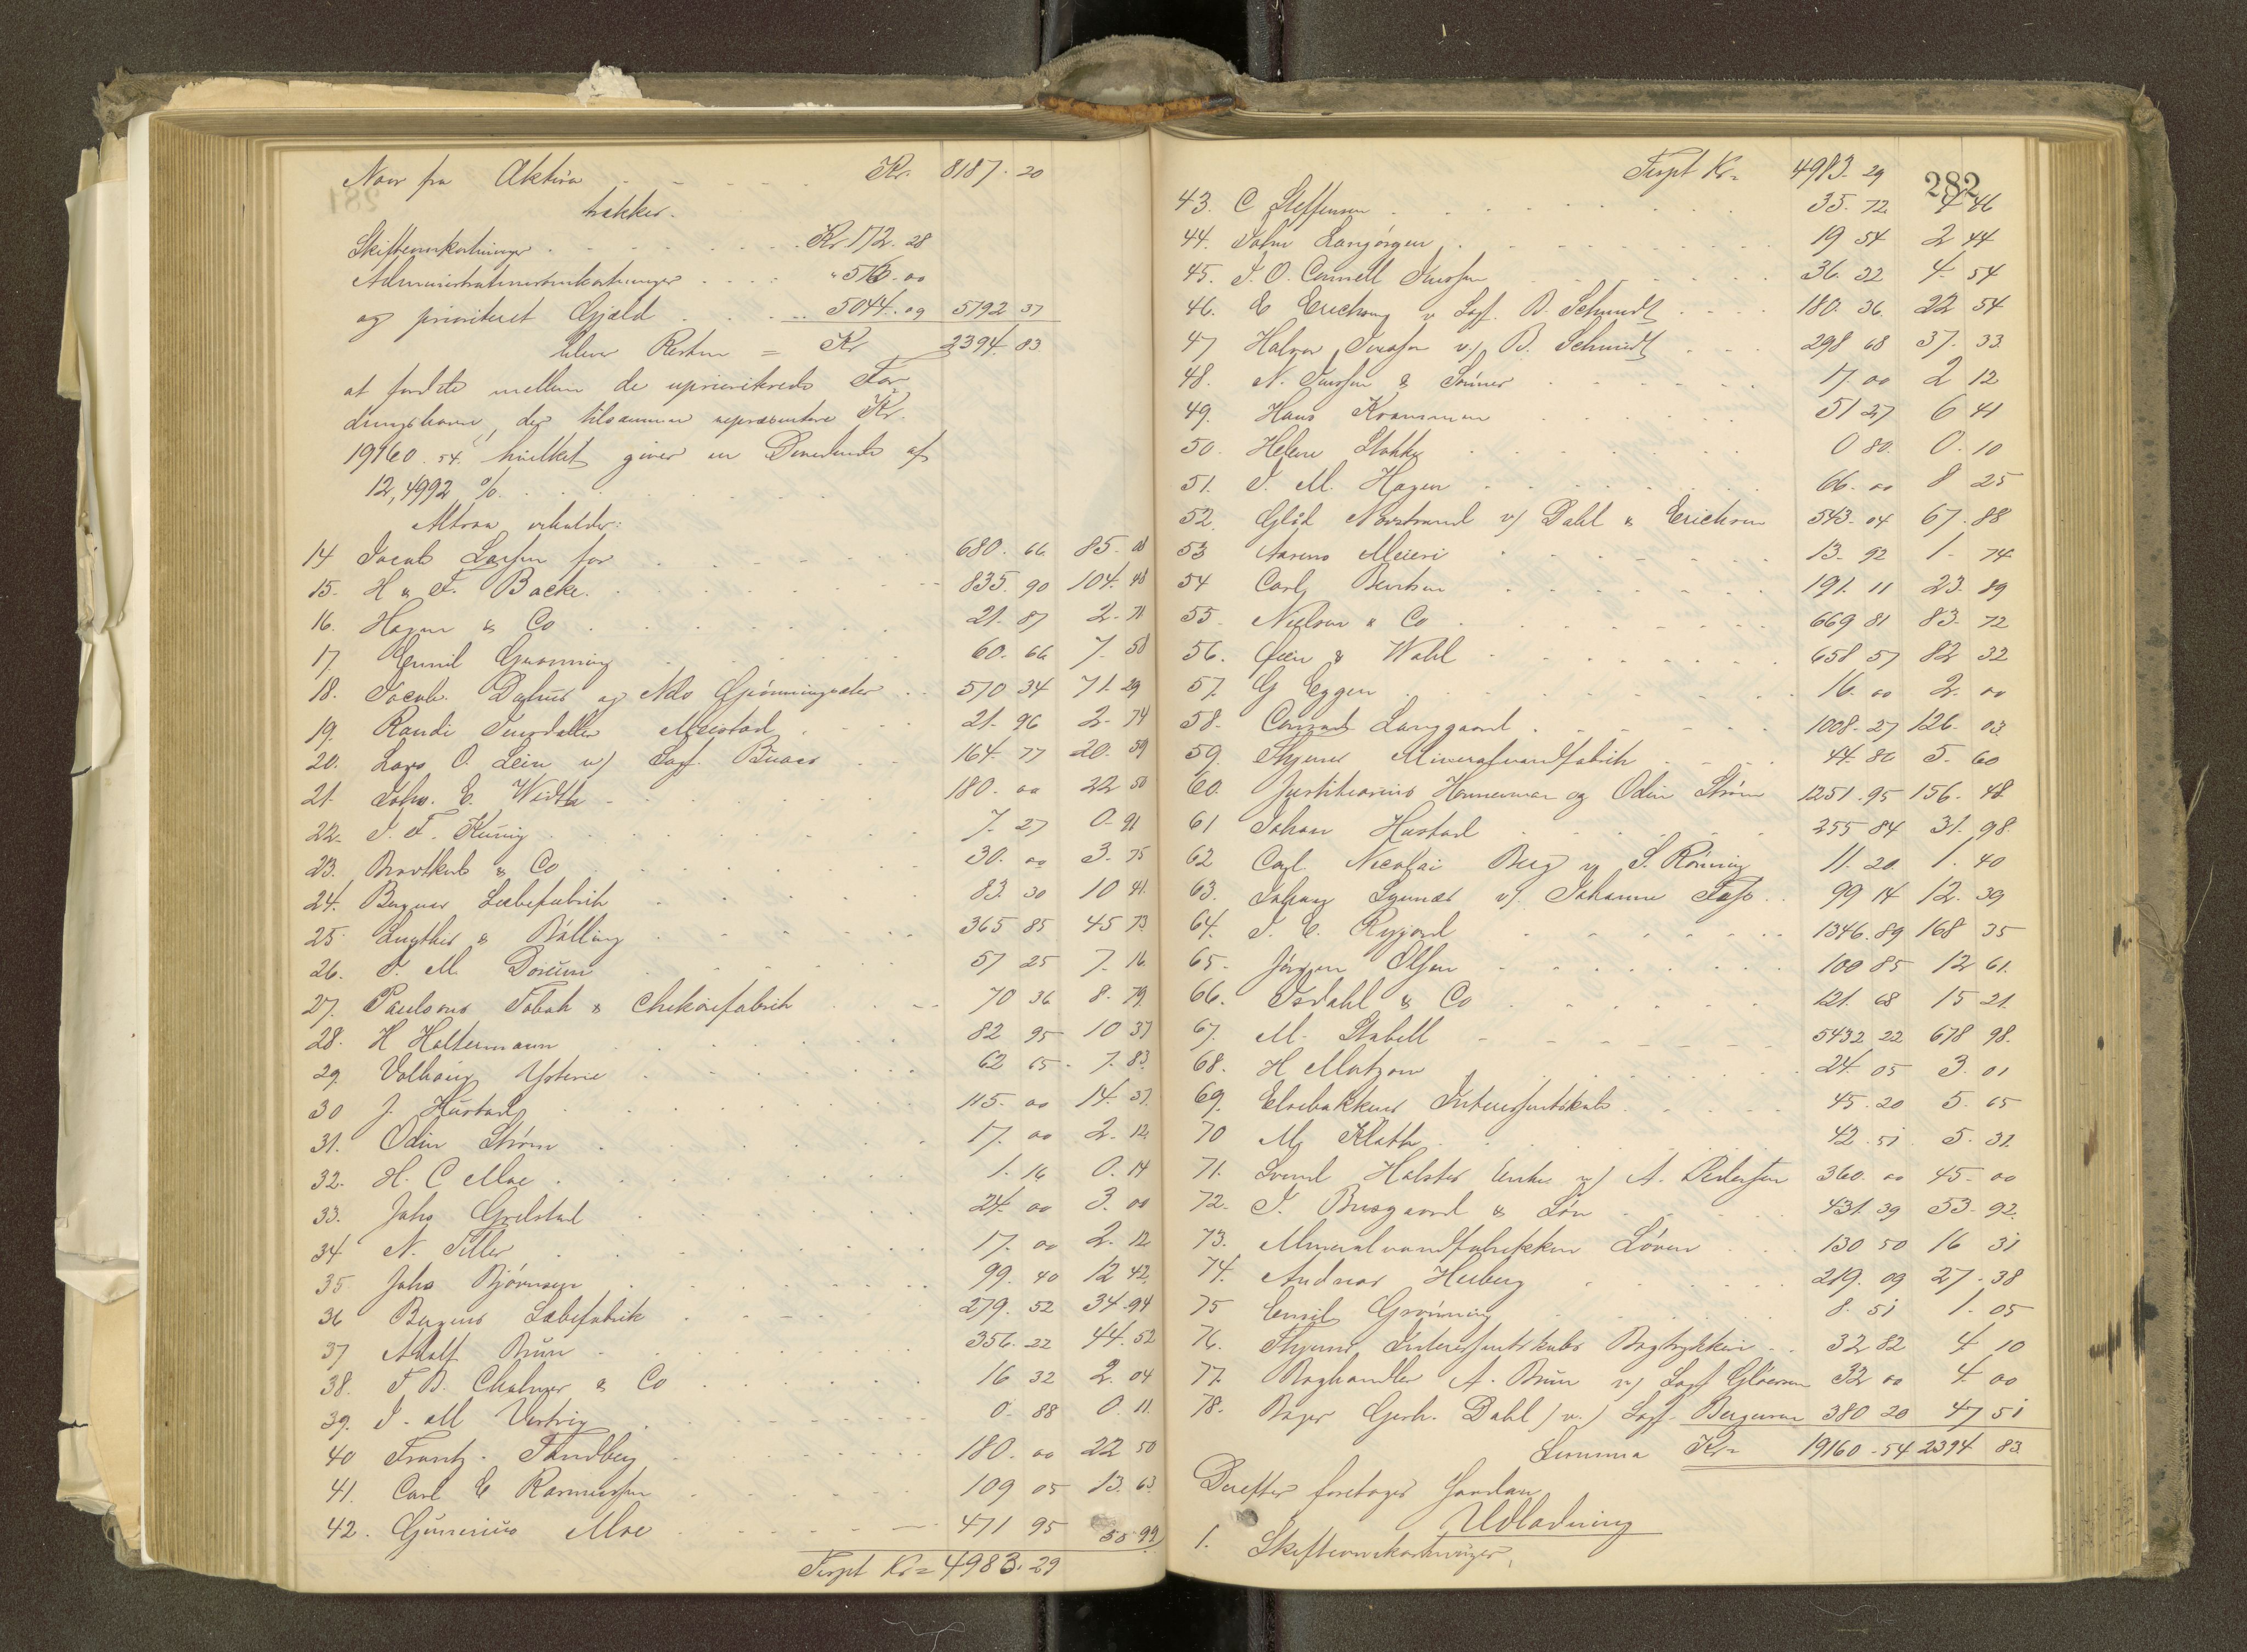 Naar fra Aktiva Kr. 8187.20
trækkes.
Skifteomkostninger Kr 172.28
Administrationsomkostninger " 576.00
og prioriteret Gjæld 5044.09 5792 37
bliver Resten = Kr 2394.83
at fordele mellem de uprioriterede For
dringshavere, der tilsammen repræsentere Kr.
19160.54. hvilket giver en Dividende af
12,4992 %.
Altsaa erholder:
14 Jacob Larsen for 680.66 85.08
15. H & F. Backe. 835.90 104.48
16. Hagen & Co 21.87 2.71
17. Emil Grønning 60.66 7.58
18. Jacob Dahus og Nils Grønningsæter 570 34 71.29
19. Randi Meistad 21.96 2.74
20. Lars O. Lein v/ Sagf. Buaas 164.77 20.59
21. Johs. E. Width 180.00 22 50
22. J. F. Kunig 7.27 0.91
23. Brovtkorb & Co 30.00 3.75
24. Bergens Sæbefabrik 83.30 10 41.
25. Lugthes & Bølling 365 85 45 73
26. T. M. Dorum 57 25 7.16
27. Paulsens Tobak & Chikoriefabrik 70 36 8.79
28. H Holtermann 82 95 10 37
29. Valhaug Ysterie 62 65 7.83
30 J. Hustad 115.00 14.37
31. Odin Strøm 17.00 2.12
32. H. C Moe 1.16 0.14
33. Johs Grelstad 24.00 3.00
34 N. Tiller 17.00 2.12
35 Johs Bjørnsen 99.40 12 42
36 Bergens Sæbefabrik 279.52 34.94
37 Adolf Bruun 356.22 44.52
38. F. B. Chalmer & Co 16 32 2.04
39. J. M Vertvig 0.88 0.11
40 Frantz Sandberg 180.00 22 50
41. Carl E Rasmussen 109 05 13.63
42. Gunerius Moe 471 95 58 99
Trspt Kr = 4983.29
282
Trspt Kr = 4983.29
43. C Steffensen 35.72 4 46
44. John Langørgen 19 54 2 44
45. J. O. Cornell Jenssen 36.32 4.54
46. E Erichsen v Sagf. B. Schmidt 180.36 22 54
47 Halvor Jenssen v/ B. Schmidt 298 68 37.33
48. N. Jenssen & Sønner 17.00 2 12
49. Hans Kraemmer 51 27 6 41
50. Helene Stokke 0 80 0.10
51. J. M. Hagen 66.00 8 25
52. Gløs Norstrand v/ Dahl & Erichsen 543.04 67.88
53 Aarens Meieri 13.92 1.74
54 Carl Berntsen 191.11 23.89
55. Nielsen & Co 669 81 83.72
56. Geen & Wahl 658 57 82 32
57. G Eggen 16.00 2.00
58. Conrad Langgaard 1008.27 126.03
59. Thjems Mineralvandfabrik 44.80 5.60
60. Justitiarius Hannemar og Odin Strøm 1251.95 156.48
61 Johan Hustad 255 84 31.98
62 Carl Nicolai Berg v/ S. Rønning 11.20 1.40
63. Johan Lyunæs v/ Johanne 99 14 12.39
64. J. C. Rygaard 1346.89 168 35
65. Jørgen Olsen 100 85 12 61
66. Isdahl & Co 121.68 15 21
67. M. Stabell 5432 22 678 98.
68. H Matzow 24.05 3.01
69. Elvebakkens Interessentskab 45.20 5.65
70 M. Klath 42.51 5.31
71. Svend Halstes Enke v/ A. Pedersen 360.00 45.00
72. J. Brusgaard & Søn 431.39 53.92
73. Mineralvandfabrikken Løven 130 50 16 31
74. Andreas Heiberg 219.09 27.38
75 Emil Grønning 8.51 1.05
76. Thjems Interessentskabs Bogtrykkeri 32 82 4 10
77. Boghandler A. Bruun v/ Sagf Gløersen 32 00 4.00
78. Bager Gerh. Dahl v/ Sagf. Bergersen 380 20 47 51
Summa Kr = 19160.54 2394 83
Derefter foretages saadan
Udlodning
1. Skifteomkostninger,